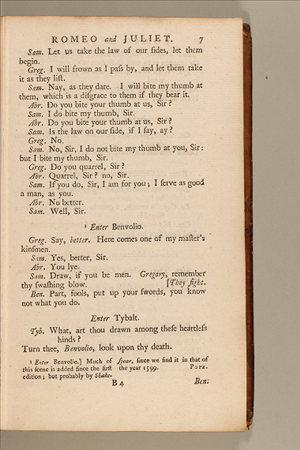 ROMEO and JULIET. 7
Sam. Let us take the law of our ſides, let them
begin.
Greg. I will frown as I paſs by, and let them take
it as they liſt.
Sam. Nay, as they dare. I will bite my thumb at
them, which is a diſgrace to them if they bear it.
Abr. Do you bite your thumb at us, Sir?
Sam. I do bite my thumb, Sir.
Abr. Do you bite your thumb at us, Sir?
Sam. Is the law on our ſide, if I ſay, ay?
Greg. No.
Sam. No, Sir, I do not bite my thumb at you, Sir:
but I bite my thumb, Sir.
Greg. Do you quarrel, Sir?
Abr. Quarrel, Sir? no, Sir.
Sam. If you do, Sir, I am for you; I ſerve as good
a man, as you.
Abr. No better.
Sam. Well, Sir.
¹ Enter Benvolio.
Greg. Say, better. Here comes one of my maſter's
kinſmen.
Sam. Yes, better, Sir.
Abr. You lye.
Sam. Draw, if you be men. Gregory, remember
thy ſwaſhing blow. [They fight.
Ben. Part, fools, put up your ſwords, you know
not what you do.
Enter Tybalt.
Tyb. What, art thou drawn among theſe heartleſs
hinds?
Turn thee, Benvolio, look upon thy death.
¹ Enter Benvolio.] Much of
this ſcene is added ſince the firſt
edition; but probably by Shake-
ſpear, ſince we find it in that of
the year 1599. POPE.
B 4 Ben.